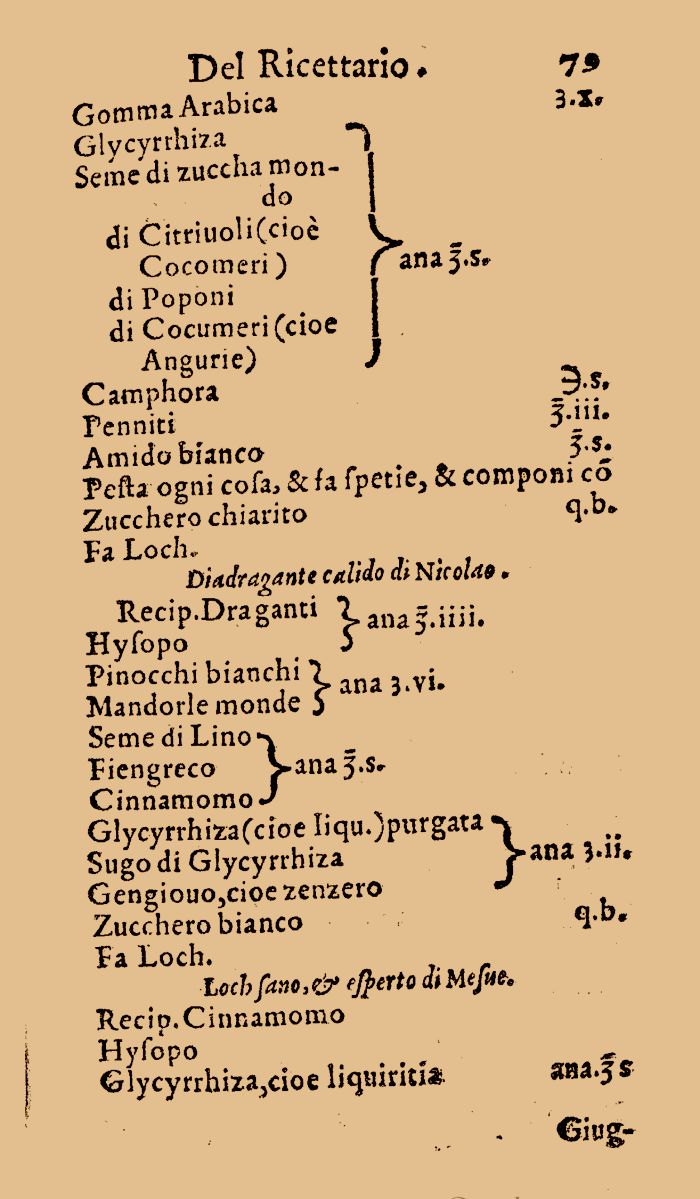 Del Ricettario. 79
Gomma Arabica ʒ.x.
Glycyrrhiza
Seme di zuccha mon-
do
di Citriuoli(cioè
Cocomeri) ana ʒ̄.s.
di Poponi
di Cocumeri(cioe
Angurie)
Camphora ℈.s.
Penniti ʒ̄.iii.
Amido bianco ʒ̄.s.
Peſta ogni coſa, & fa ſpetie, & componi cō
Zucchero chiarito q.b.
Fa Loch.
Diadragante calido di Nicolao.
Recip.Draganti ana ʒ̄.iiii.
Hyſopo
Pinocchi bianchi ana ʒ.vi.
Mandorle monde
Seme di Lino
Fiengreco ana ʒ̄.s.
Cinnamomo
Glycyrrhiza(cioe liqu.)purgata
Sugo di Glycyrrhiza ana ʒ.ii.
Gengiouo,cioe zenzero
Zucchero bianco q.b.
Fa Loch.
Loch ſano,& eſperto di Meſue.
Recip.Cinnamomo
Hyſopo
Glycyrrhiza,cioe liquiritia ana.ʒ̄ s
Giug-